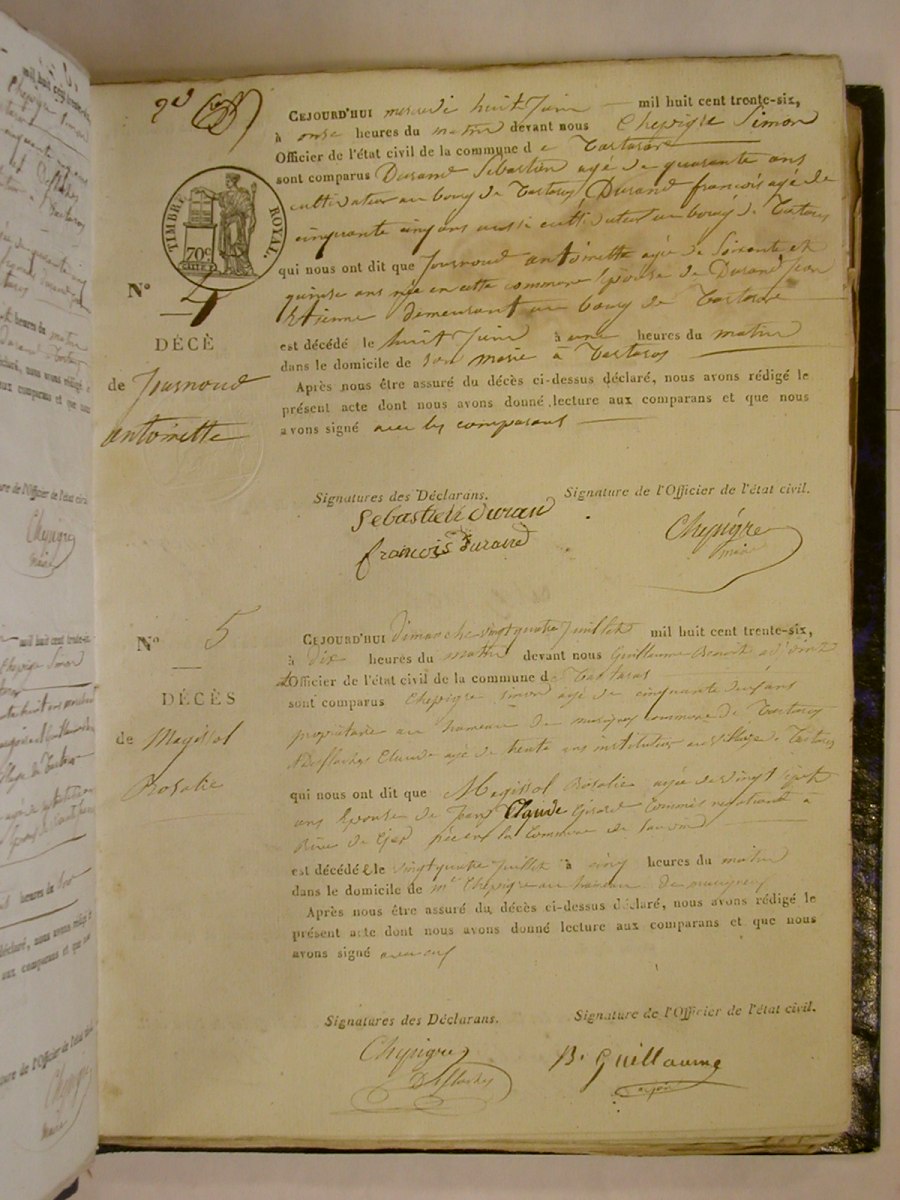 CEJOURD'HUI mercredi huit Juin mil huit cent trente-six,
à onze heures du matin devant nous Chepigre Simon
Officier de l'état civil de la commune de Tartaras
sont comparus Durand Sébastien agé de quarante ans
cultivateur au bourg de Tartaras Durand françois agé de
cinquante cinq ans aussi cultivateur au bourg de Tartaras
TIMBRE ROYAL.
70c
qui nous ont dit que Journoud antoinette agée de Soixante et
quinse ans née en cette commune Epouse de Durand Jean
Etienne demeurant au bourg de Tartaras
est décédé le huit Juin à une heures du matin
dans le domicile de son marie à Tartaras
Après nous être assuré du décès ci-dessus déclaré, nous avons rédigé le
présent acte dont nous avons donné lecture aux comparans et que nous
avons signé avec les comparans
N° 4
DÉCÈ
de Journoud
antoinette
Signatures des Déclarans. Signature de l'Officier de l'état civil.
Sebastien duran
francois durand
Chepigre
maire
N° 5
DÉCÈS
de Magissol
Rosalie
CEJOURD'HUI dimanche vingt quatre Juillet mil huit cent trente-six,
à dix heures du matin devant nous Guillaume Benoit adjoint
Officier de l'état civil de la commune de Tartaras
sont comparus Chepigre Simon agé de cinquante ans
propriétaire au hameau de commune de Tartaras
Desflaches Claude agé de trente ans instituteur au village de Tartaras
qui nous ont dit que Magissol Rosalie agée de vingt sept
ans Epouse de Jean Claude Girard Commis negotiant à
Rive de Gier née en la Commune de
est décédée le vingt quatre Juillet à cinq heures du matin
dans le domicile de mr Chepigre au hameau de
Après nous être assuré du décès ci-dessus déclaré, nous avons rédigé le
présent acte dont nous avons donné lecture aux comparans et que nous
avons signé avec eux
Signatures des Déclarans. Signature de l'Officier de l'état civil.
Chepigre
Desflaches
B. Guillaume
adjoint